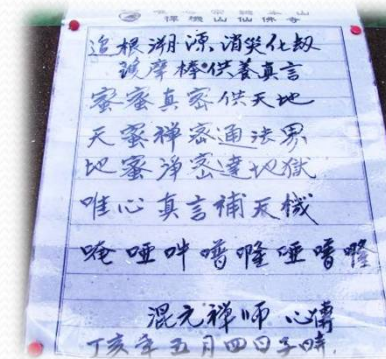 禪機山仙佛寺
追根溯源消災化劫
供養真言
密密真密供天地
天密禪密通法界
地密淨密達地獄
唯心真言補天機
唵啞吽噆嚨啞噆嚨
混元禪師 心傳
丁亥年五月四日子時